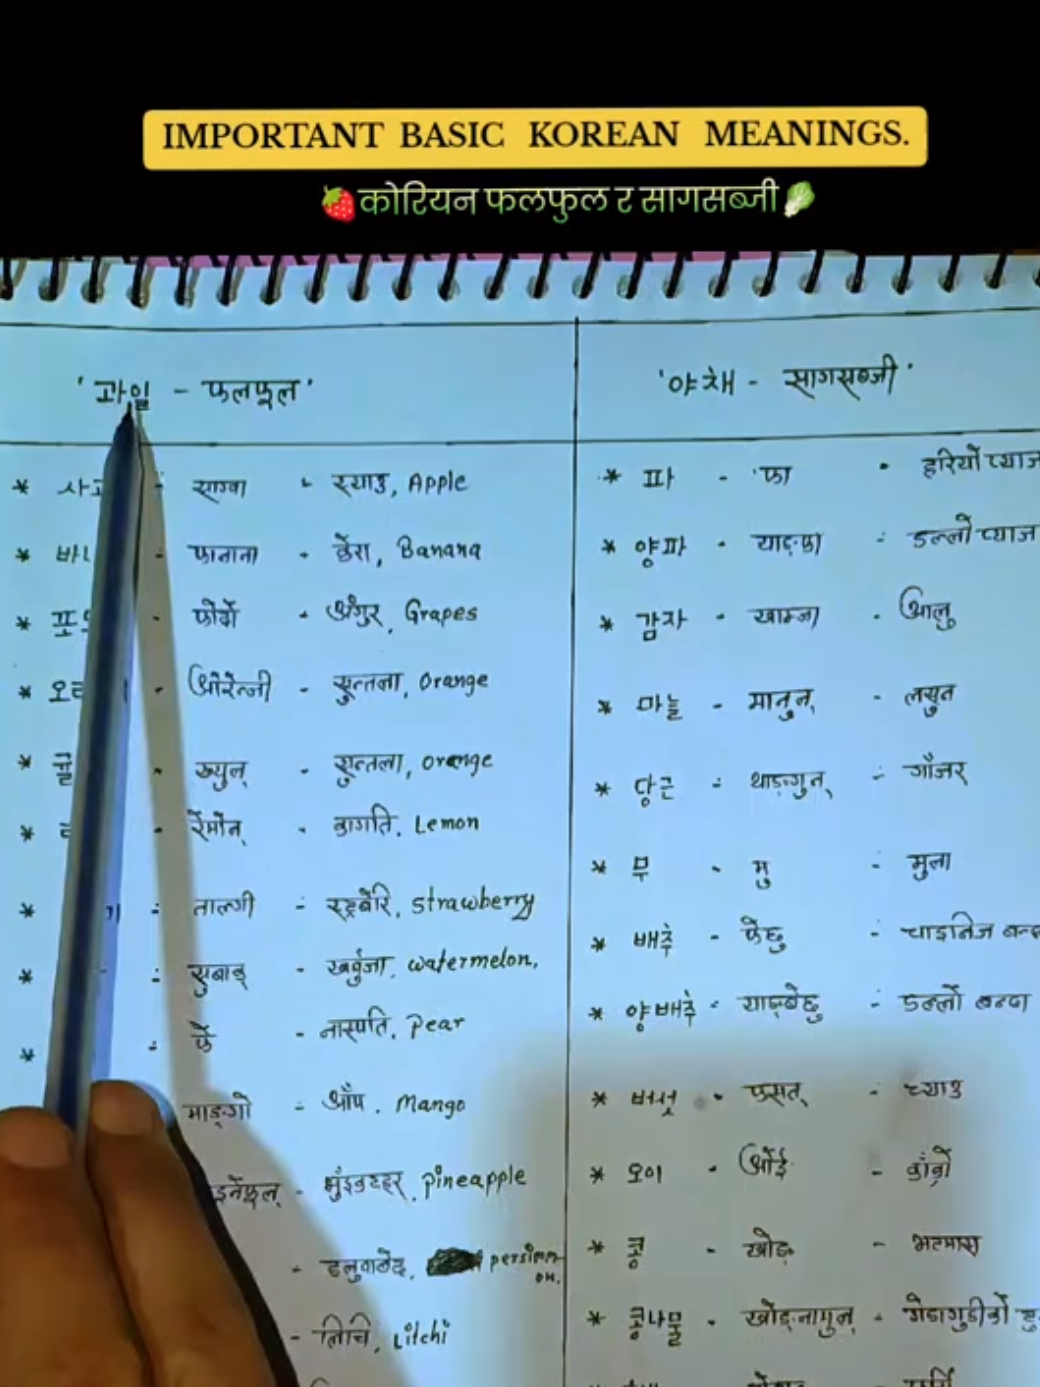 IMPORTANT BASIC KOREAN MEANINGS.
कोरियन फलफुल र सागसब्जी
'과일 - फलफूल'
'야채 - सागसब्जी'
* साग्वा - स्याउ, Apple
* 바나 : फानाना - केरा, Banana
* फोदो - अँगुर, Grapes
* 오 - ओरेन्जी - सुन्तला, Orange
* 귤 - ख्युल् - सुन्तला, orange
* रेमोन् - कागति, Lemon
* : ताल्गी - स्ट्रबेरि, strawberry
* : सुबाक् - खर्बुजा, watermelon,
* : फे - नास्पति, Pear
माङ्गो - आँप, Mango
इनेफूल् - भुँइकटहर, pineapple
- हलुवाबेद, persimmon.
- लिचि, Litchi
* 파 - फा - हरियो प्याज
* 양파 - याङ्फा : डल्लो प्याज
* 감자 - खाम्जा - आलु
* 마늘 - मानुल् - लसुन
* 당근 : थाङ्गुन् - गाँजर
* 무 - मु - मुला
* 배추 - फेछु - चाइनिज बन्दा
* 양배추 - याङ्बेछु - डल्लो बन्दा
* 버섯 - फसत् - च्याउ
* 오이 - ओई - काँक्रो
* 콩 - खोङ् - भटमास
* 콩나물 - खोङ्नामुल् - गेडागुडीको